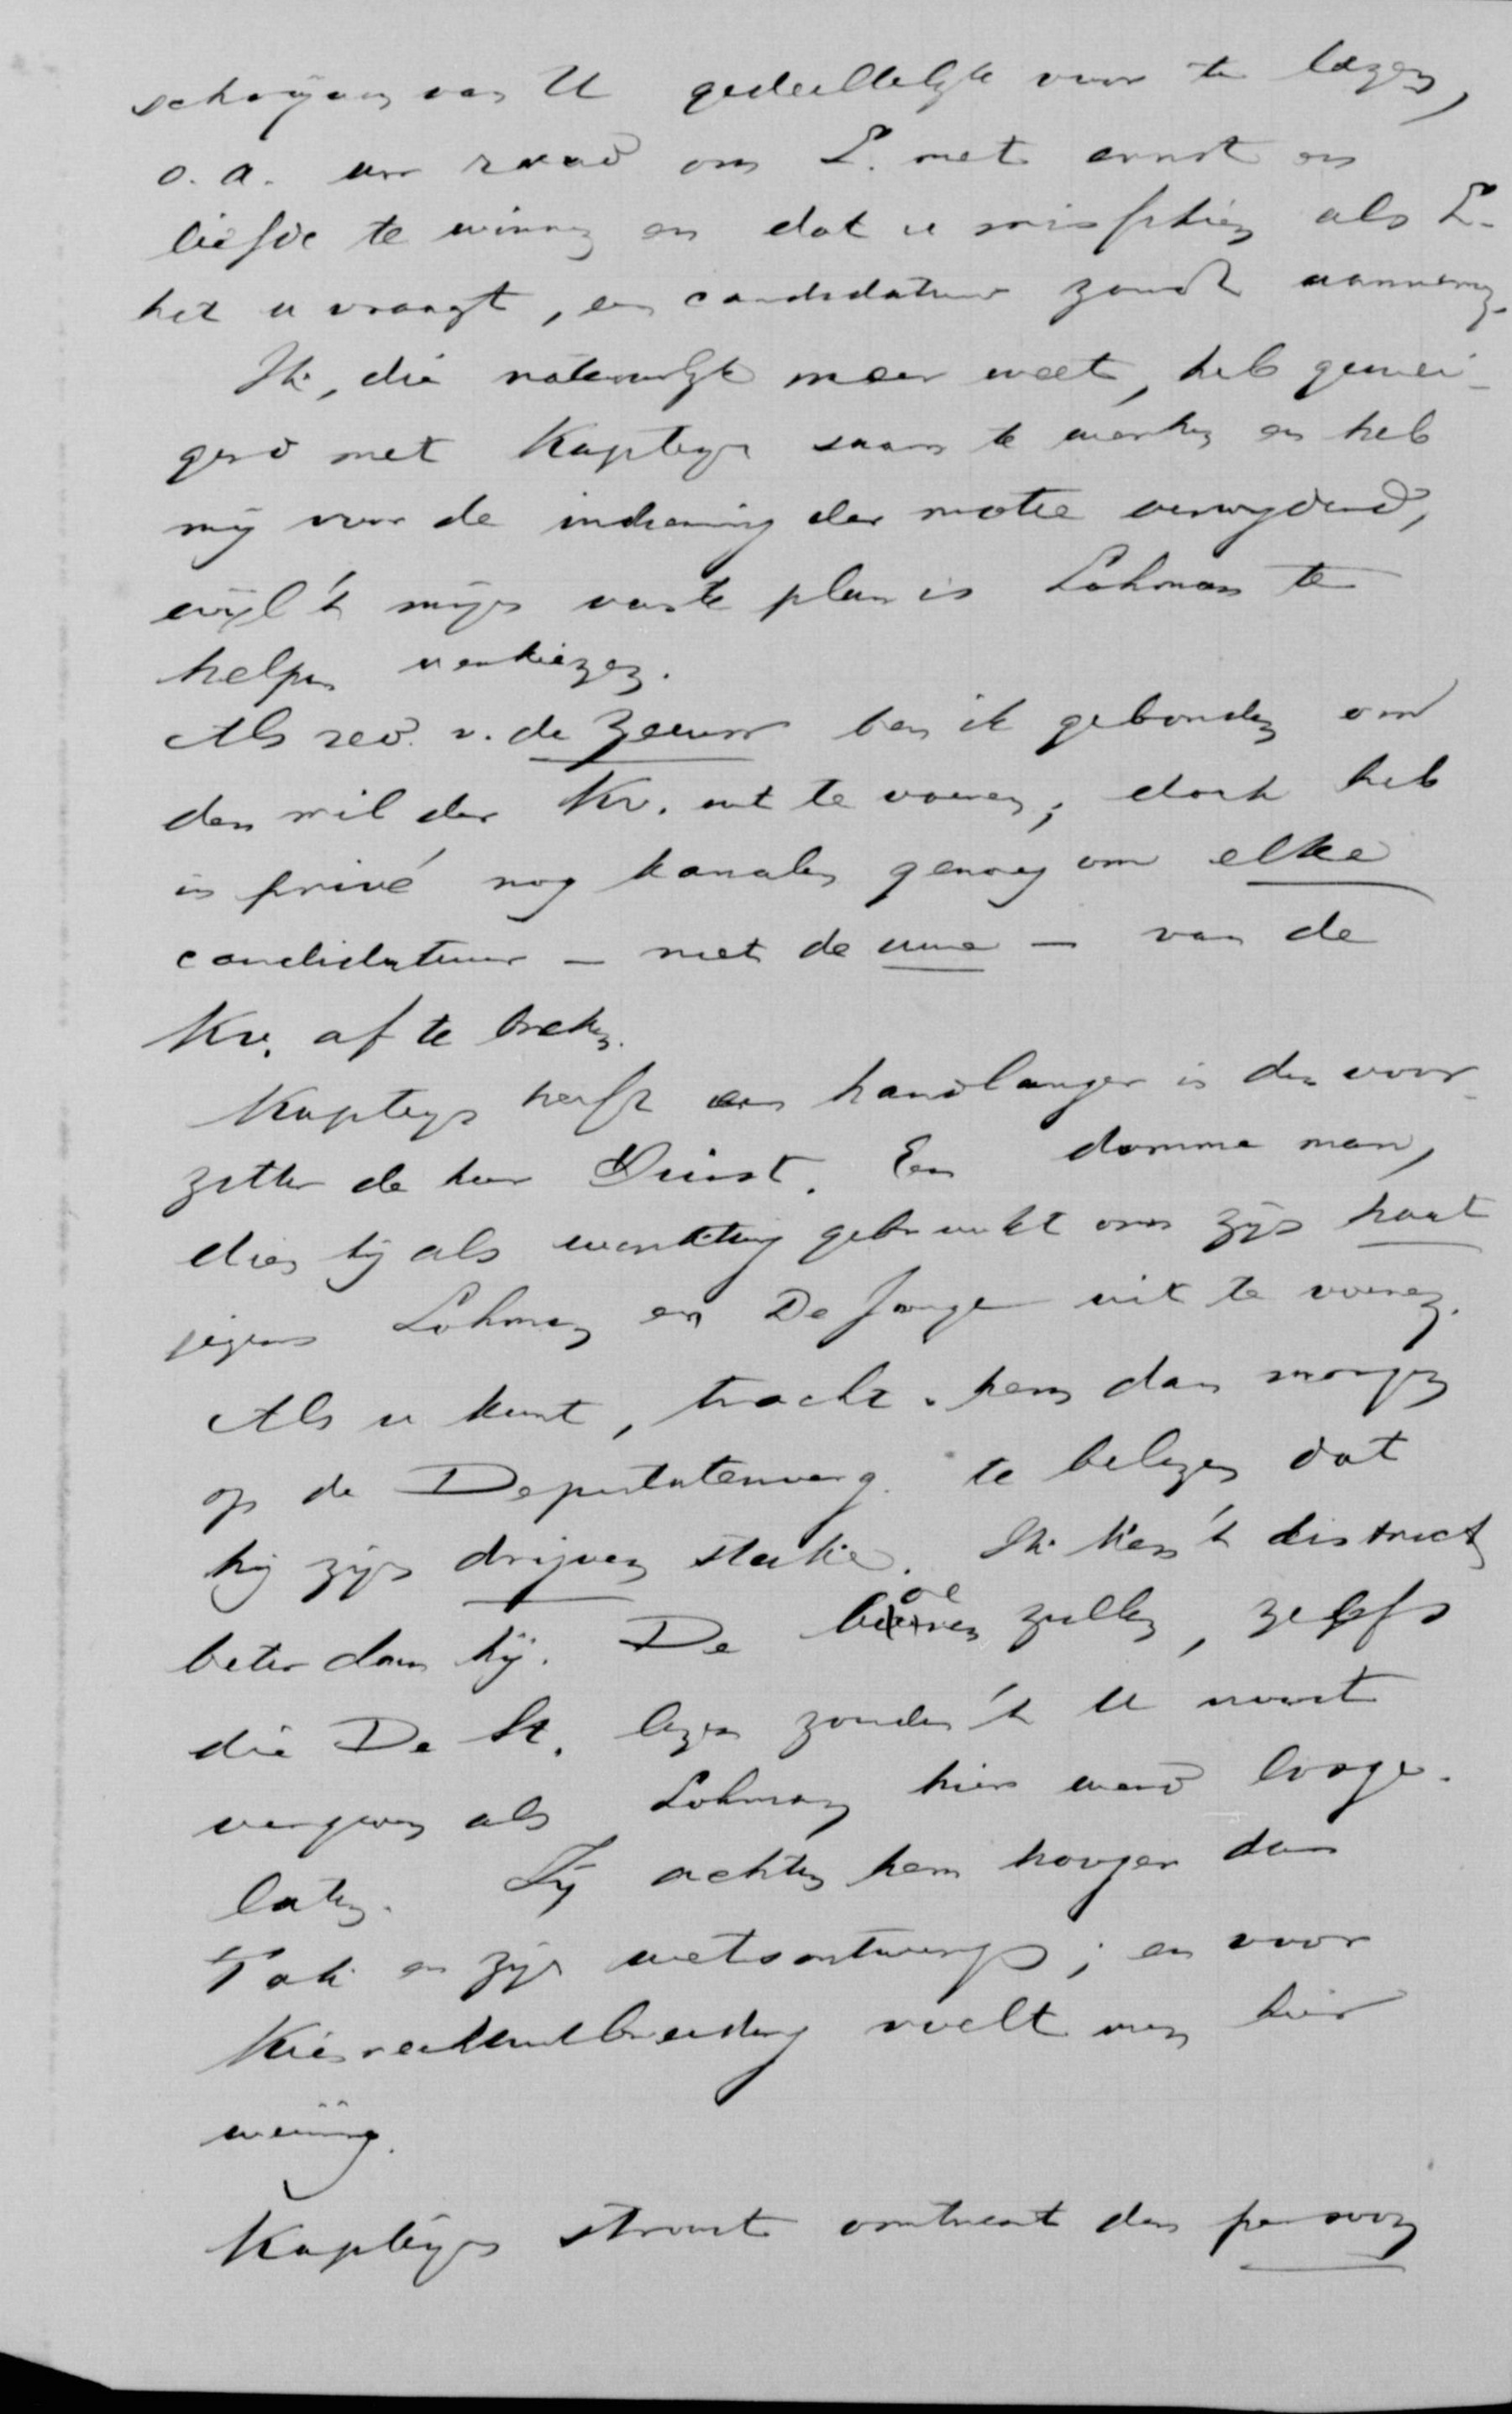 schrijven van U gedeeltelijk voor te lezen,
o. a. uw raad om L. met ernst en
liefde te winnen en dat u misschien als L.
het u vraagt, een candidatuur zoudt aannemen.
Ik, die natuurlijk meer weet, heb gewei-
gerd met Kapteijn saam te werken en heb
mij voor de indiening der motie verwijderd,
wijl 't mijn vaste plan is Lohman te
helpen verkiezen.
Als red. v. de Zeeuw ben ik gebonden om
den wil der Kv. uit te voeren; doch heb
in privé nog kanalen genoeg om elke
candidatuur – niet de uwe – van de
Kv. af te breken.
Kapteijn heeft een handlanger in den voor-
zitter de heer Duist. Een domme man,
dien hij als werktuig gebruikt om zijn haat
jegens Lohman en De Jonge uit te voeren.
Als u kunt, tracht hem dan morgen
op de Deputatenverg. te belezen dat
hij zijn drijven stake. Ik ken 't district
beter dan hij. De boeren zullen, zelfs
die De St. lezen zouden 't U nooit
vergeven als Lohman hier werd losge-
laten. Zij achten hem hooger dan
Tak en zijn wetsontwerp; en voor
Kiesrechtuitbreiding voelt men hier
weinig.
Kapteijn strooit omtrent den persoon